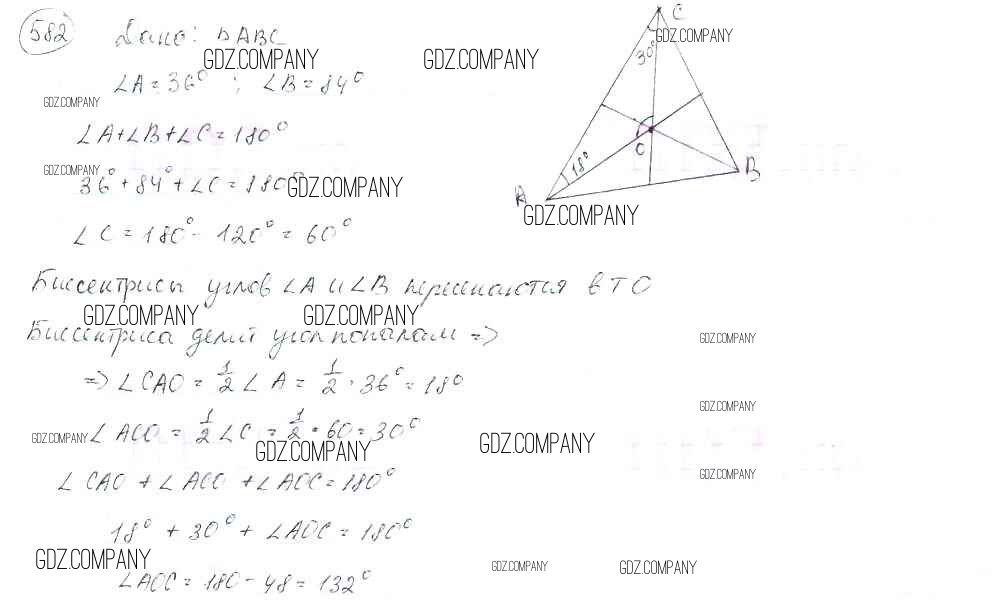 582
Дано: ΔABC
GDZ.COMPANY GDZ.COMPANY GDZ.COMPANY
∠A = 36° ; ∠B = 84°
GDZ.COMPANY
∠A+∠B+∠C = 180°
GDZ.COMPANY
36° + 84° + ∠C = 180°
GDZ.COMPANY
∠C = 180° - 120° = 60°
C
30°
18°
O
A
B
GDZ.COMPANY
Биссектрисы углов ∠A и ∠B пересекаются в т O
GDZ.COMPANY GDZ.COMPANY
Биссектриса делит угол пополам =>
GDZ.COMPANY
=> ∠CAO = 1/2 ∠A = 1/2 · 36° = 18°
GDZ.COMPANY
∠ACO = 1/2 ∠C = 1/2 · 60 = 30°
GDZ.COMPANY GDZ.COMPANY GDZ.COMPANY
∠CAO + ∠ACO + ∠AOC = 180°
GDZ.COMPANY
18° + 30° + ∠AOC = 180°
GDZ.COMPANY GDZ.COMPANY GDZ.COMPANY
∠AOC = 180 - 48 = 132°